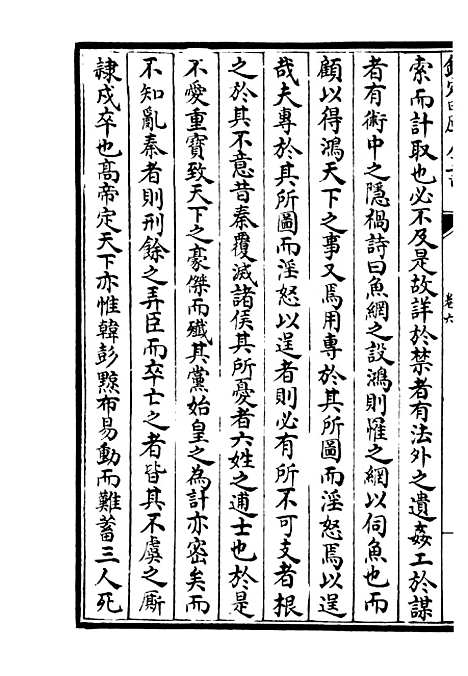 欽定四庫全書
卷六
索而計取也必不及是故詳於禁者有法外之遺姦工於謀
者有術中之隱禍詩曰魚網之設鴻則罹之網以伺魚也而
顧以得鴻天下之事又焉用專於其所圖而淫怒焉以逞
哉夫專於其所圖而淫怒以逞者則必有所不可支者根
之於其不意昔秦覆滅諸侯其所憂者六姓之逋士也於是
不愛重寶致天下之豪傑而殲其黨始皇之為計亦密矣而
不知亂秦者則刑餘之弄臣而卒亡之者皆其不虞之厮
隷戍卒也髙帝定天下亦惟韓彭黥布易動而難蓄三人死